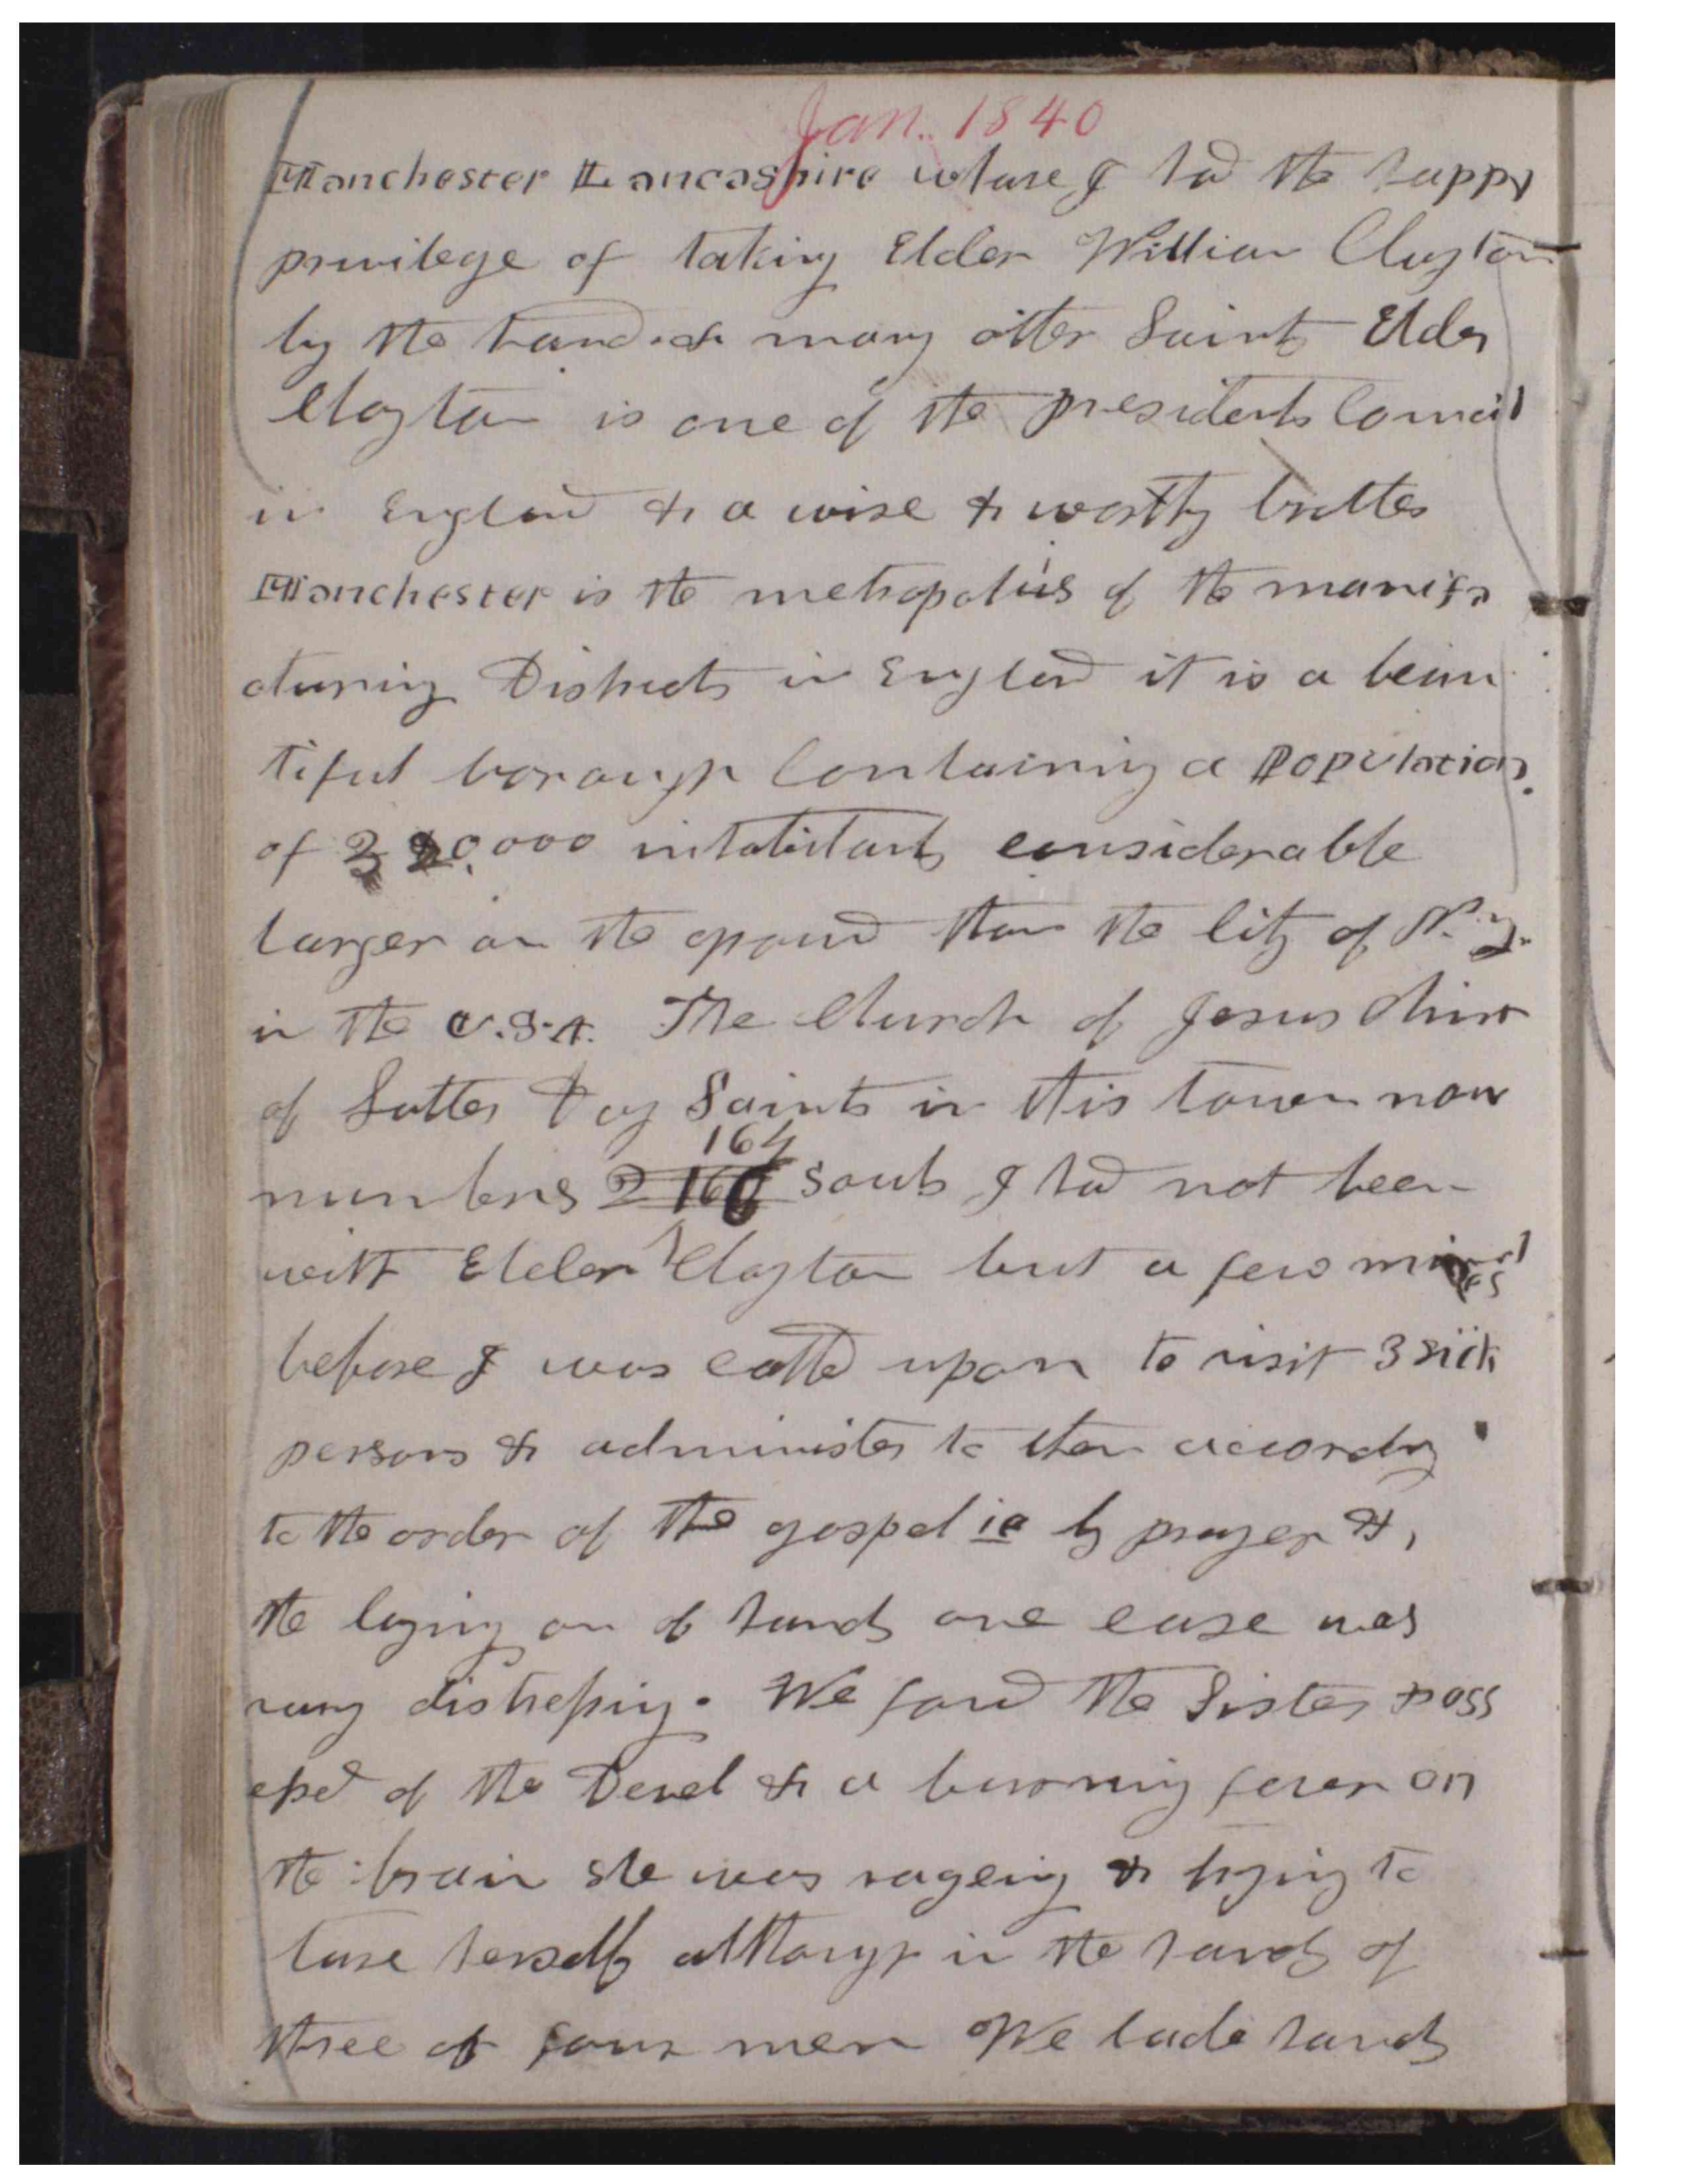 Jan. 1840
Manchester Lancashire whare I had the happy
privilege of taking Elder William Clayton
by the hand & many other Saints Elder
Clayton is one of the presidents Council
in England & a wise & worthy brother
Manchester is the metropolus of the manifa
cturing Districts in England it is a beau
tiful borough Containing a Population
of 320,000 inhabitants considerable
larger on the ground than the City of N.Y.
in the U.S.A. The Church of Jesus Christ
of Latter Day Saints in this town now
164
numbers souls I had not been
with Elder Clayton but a few minutes
before I was called upon to visit 3 sick
persons & administer to them according
to the order of the gospel ie by prayer &
the laying on of hands one case was
vary distressing. We found the Sister poss
essed of the Devel & a burning fever on
the brain she was rageing & trying to
tare herself although in the hands of
three of four men We lade hands